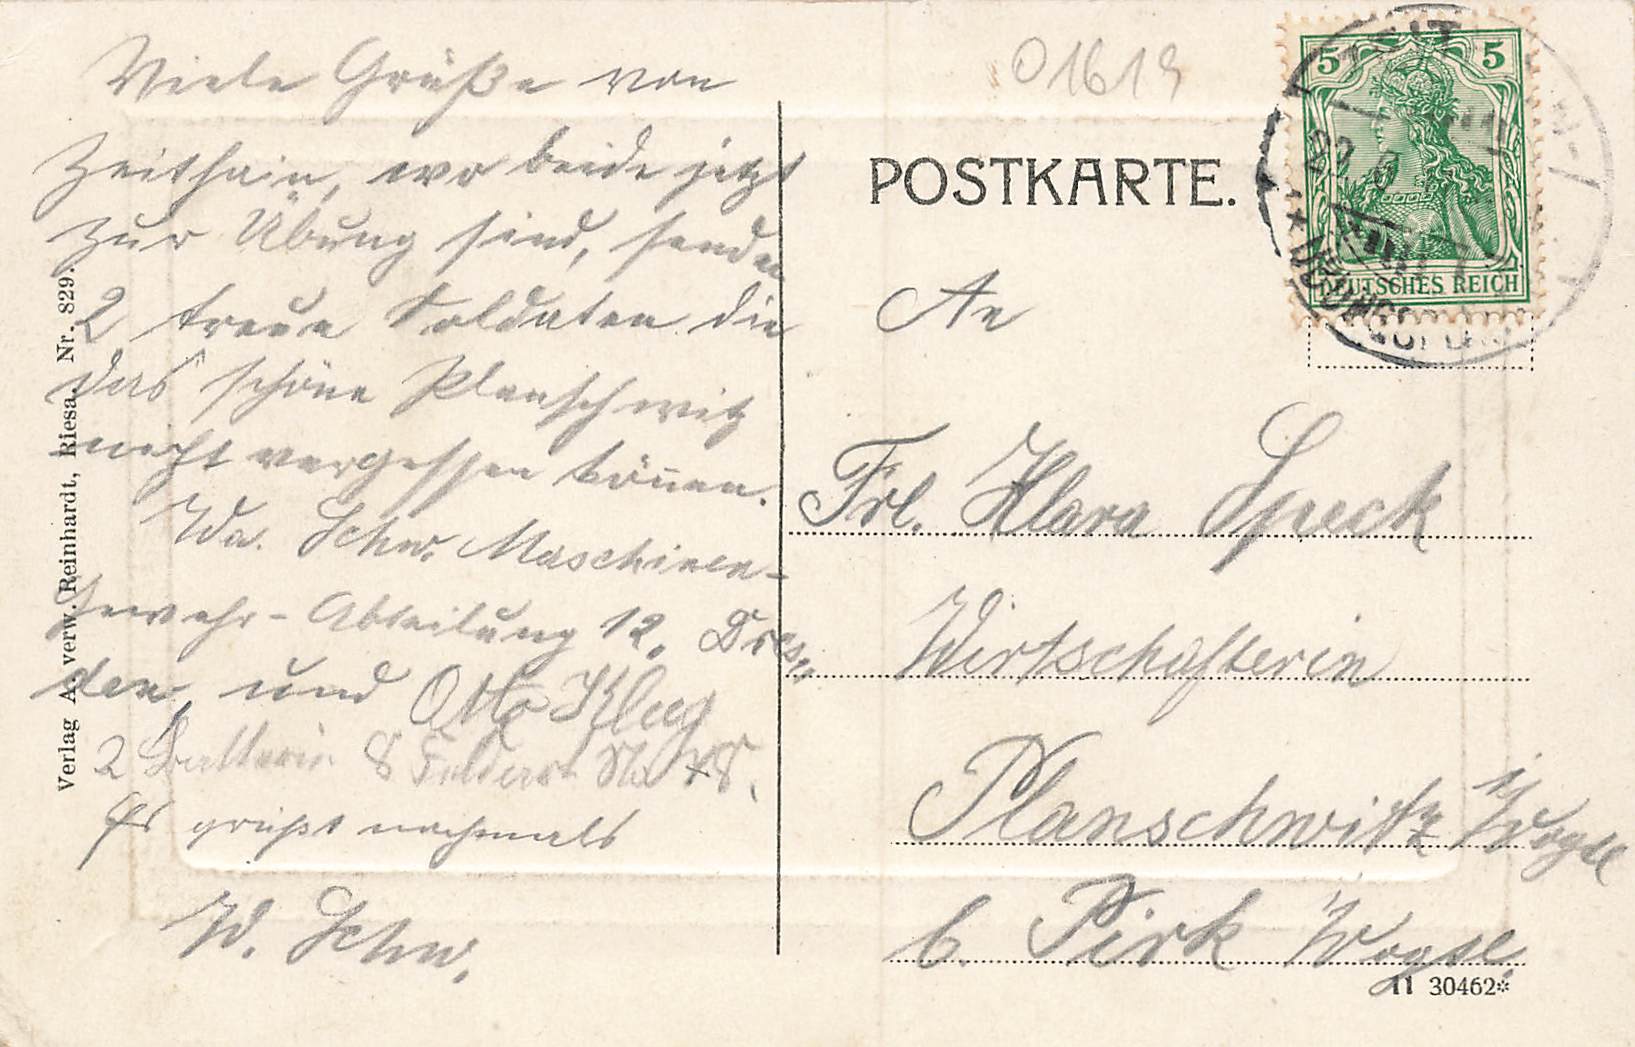 Viele Grüße von
Zeithain, wo beide jetzt
zur Übung sind, senden
2 treue Soldaten die
das schöne Planschwitz
nicht vergessen können.
Wa. Schw. Maschinen-
Gewehr-Abteilung 12. Dres-
den, und Otto Klug
2 Batterie 8 Feldart. No 78.
Es grüßt nochmals
W. Schw.
Verlag A. verw. Reinhardt, Riesa. Nr. 829.
01619
POSTKARTE.
5 5
DEUTSCHES REICH
An
Frl. Klara Speck
Wirtschafterin
Planschwitz i/Vogtl
b. Pirk i/Vogtl.
11 30462*